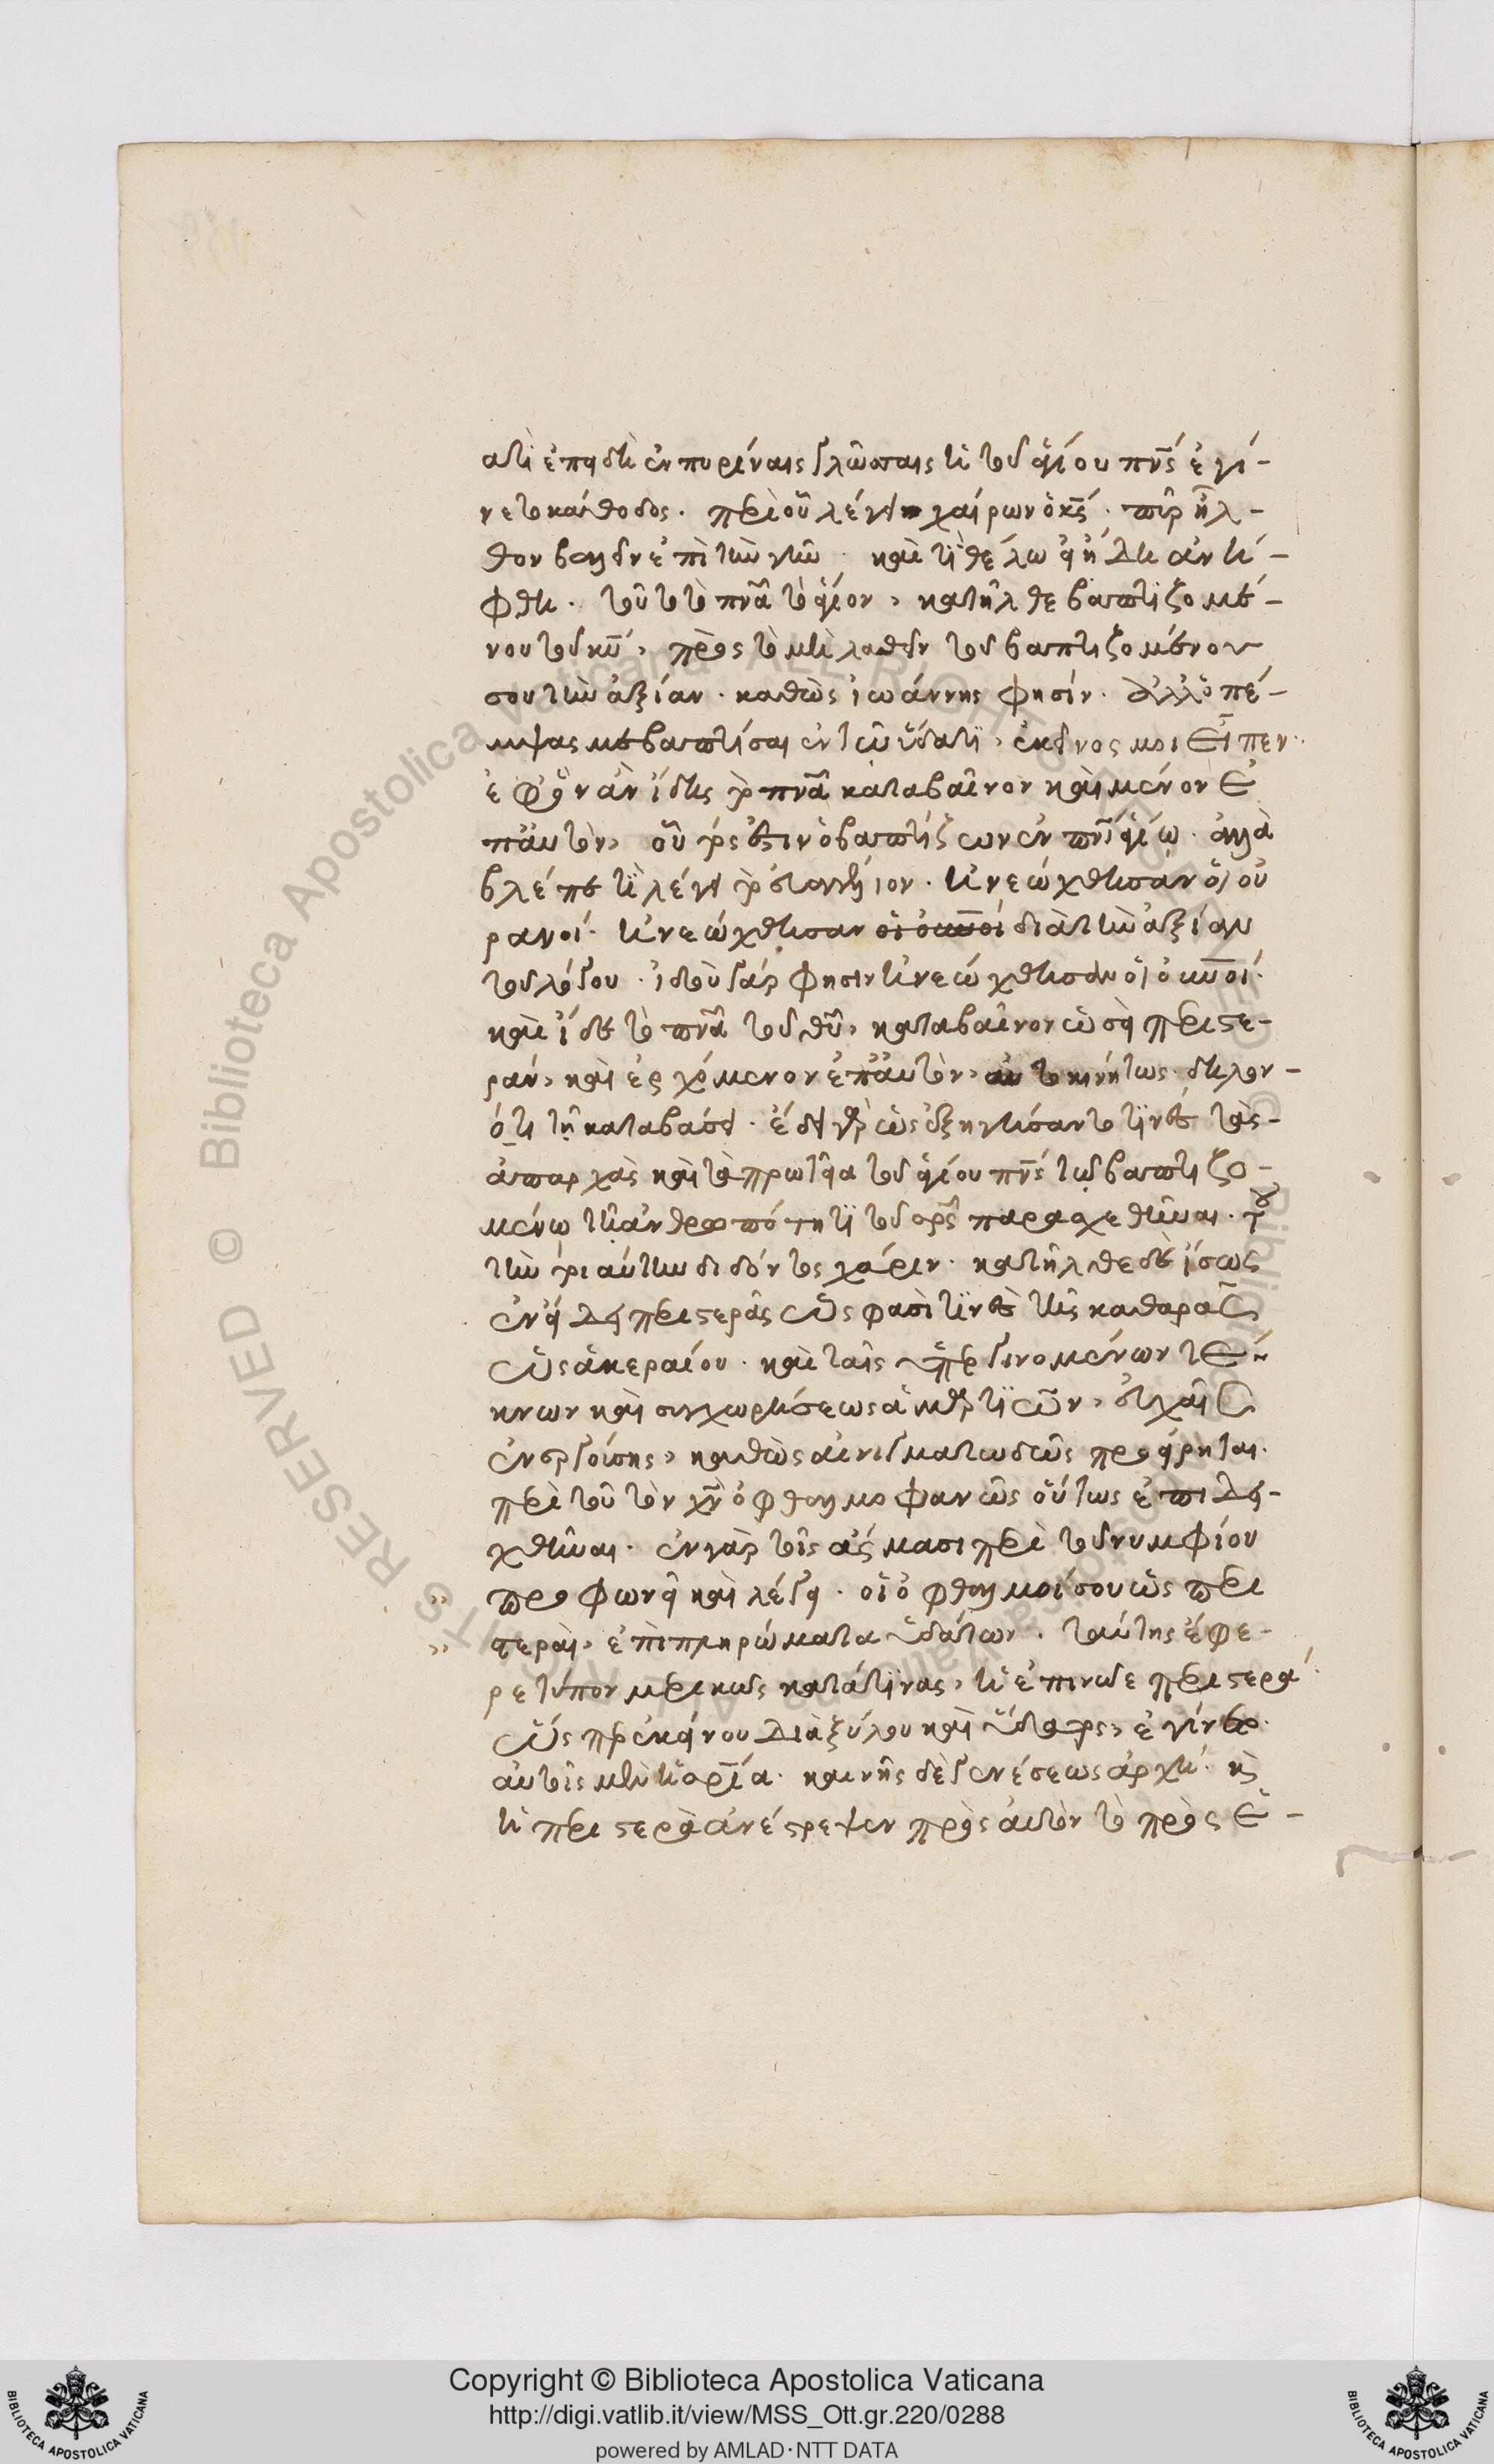 ἐπειδὴ ἐν πυρίναις γλώσσαις ἡ τοῦ ἁγίου πνς ἐγί-
νετο κάθοδος. περὶ οὗ λέγει χαίρων ὁ κς. πῦρ ἦλ-
θον βαλεῖν ἐπὶ τὴν γῆν. καὶ τί θέλω εἰ ἤδη ἀνή-
φθη. τοῦτο τὸ πνα τὸ ἅγιον, κατῆλθε βαπτιζομέ-
νου τοῦ κυ, πρὸς τὸ μὴ λαθεῖν τοῦ βαπτιζομένου
σου τὴν ἀξίαν. καθὼς ἰωάννης φησίν. ἀλλ' ὁ πέ-
μψας με βαπτίσαι ἐν τῶ ὕδατι, ἐκεῖνος μοι εἶπεν.
ἐφ' ὃν ἂν ἴδης τὸ πνα καταβαῖνον καὶ μένον ἐ
π' αὐτὸν, οὗτός ἐστιν ὁ βαπτίζων ἐν πνι ἁγίω. ἀλλὰ
βλέπε τί λέγει τὸ εὐαγγέλιον. ἠνεώχθησαν οἱ οὐ
ρανοί. ἠνεώχθησαν διὰ τὴν ἀξίαν
τοῦ λόγου. ἰδοὺ γάρ φησιν ἠνεώχθησαν οἱ οὐνοί.
καὶ ἴδε τὸ πνα τοῦ θυ, καταβαῖνον ὡσεὶ περιστε-
ράν, καὶ ἐρχόμενον ἐπ' αὐτὸν, αὐτοκινήτως δηλον-
ότι τῆ καταβάσει. ἔδει γὰρ ὡς ἐξηγήσαντό τινες τὰς
ἀπαρχὰς καὶ τὰ πρωτεῖα τοῦ ἁγίου πνς τῶν βαπτιζο-
μένω τῆ ἀνθρωπότητι τοῦ σρς παρασχεθῆναι. τοῦ
τὴν τοιαύτην διδόντος χάριν. κατῆλθε δὲ ἴσως
ἐν εἴδει περιστερᾶς ὥς φασί τινες τῆς καθαρᾶς
ὡς ἀκεραίου. καὶ ταῖς ὑπὲρ γινομένων τέ-
κνων καὶ συγχωρήσεως ἁμαρτιῶν, εὐχαῖς
συνεργούσης, καθὼς αἰνιγματωδῶς προείρηται.
περὶ τοῦ τὸν χν ὀφθαλμοφανῶς οὕτως ἐπιδει-
χθῆναι. ἐν γὰρ τοῖς ἄσμασι περὶ τοῦ νυμφίου
προφωνεῖ καὶ λέγει. οἱ ὀφθαλμοί σου ὡς περι
στεραὶ, ἐπὶ πληρώματα ὑδάτων. ταύτης ἔφε-
ρε τύπον μερικῶς κατά τινας, ἡ ἐπὶ νῶε περιστερά.
ὥσπερ ἐκείνου διὰ ξύλου καὶ ὕδατος, ἐγίνετο
αὐτοῖς μὲν ἡ σρία. καινῆς δὲ γενέσεως ἀρχή. κὶ
ἡ περιστερὰ ἀνέστρεψεν πρὸς αὐτὸν τὸ πρὸς ἑ-
Copyright © Biblioteca Apostolica Vaticana
http://digi.vatlib.it/view/MSS_Ott.gr.220/0288
powered by AMLAD·NTT DATA